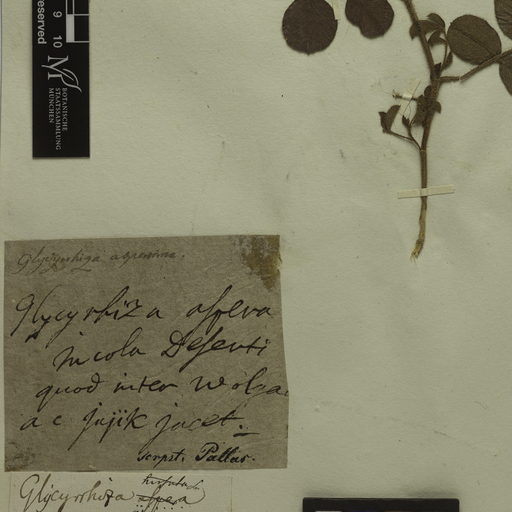 reserved
9 10
BOTANISCHE
STAATSSAMMLUNG
MÜNCHEN
Glycyrrhiza
Glycyrrhiza aspera
incola Deserti
quod inter Wolga
ac Jajik jacet.
scrpst. Pallas.
Glycyrrhiza aspera